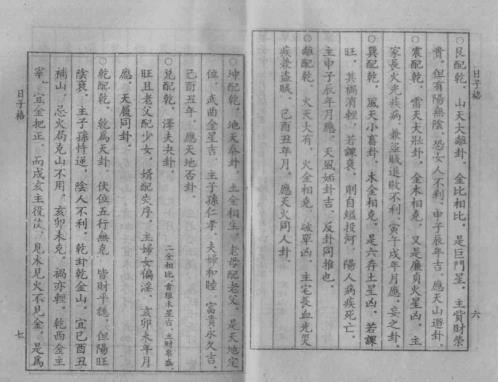 日子秘
六
○艮配乾、山天大離卦、金比相比、是巨門星、主賞財榮
貴、但有陽無陰、恐女人不利、申子辰年吉、應天山遯卦、
○震配乾、雷天大壯卦、金木相尅、又是廉貞火星凶、主
家長火光疾病、兼盜賊退敗不利、寅午戌年月應、妄之卦、
○巽配乾、風天小畜卦、木金相尅、是六存土星凶、若課
旺、其禍消輕、若課衰、則自縊投河、陽人病疾死亡、
主申子辰年月應、天風姤卦吉、反卦同推也、
○離配乾、火天大有、火金相尅、破軍凶、主宅長血光災
疾兼盜賊、己酉丑年月、應天火同人卦、
○坤配乾、地天泰卦、土金相生、老學配老父、是天地定
位、武曲金星吉、主子孫仁孝、夫婦和睦、富貴永久吉、
己酉丑年、應天地否卦、
○兌配乾、澤夫夬卦、二金相比、貪狼木星吉、主財帛盛
旺且老父配少女、婚配失序、主婦女偏淫、亥卯未年月
應、天履同卦、
○乾配乾、乾為天卦、伏位五行無尅、皆財平穩、但陽旺
陰衰、主子孫悖逆、陰人不利、乾卦乾金山、宜己酉丑
補山、忌火局克山不用、亥卯未克、禍亦輕、乾酉金主
宰、宜金把正、而戌亥主後從、見木見火不見金、是為
日子秘
七